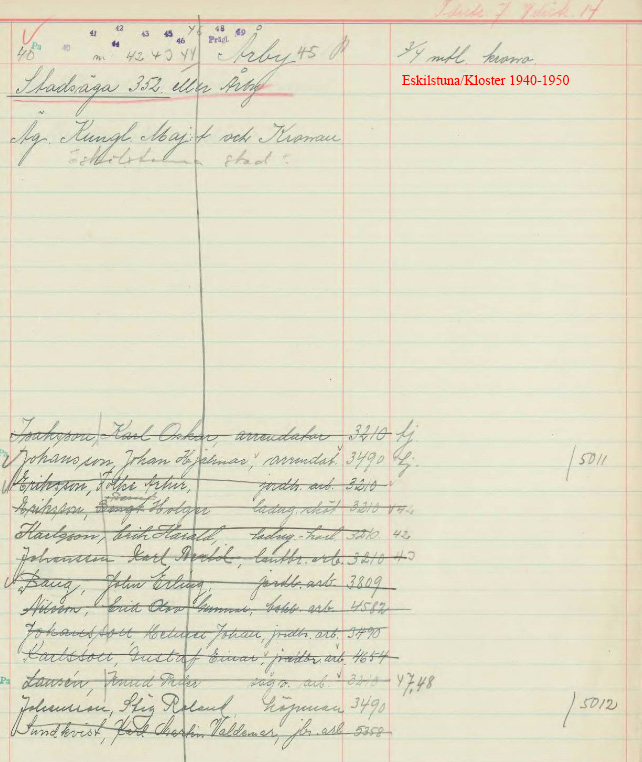 7 14
41 42 43 45 46 48 49
Pa 40 44 46 Prägl.
40 m 42 43 44 Årby 45 3/4 mtl krono.
Stadsäga 352 eller Årby
Eskilstuna/Kloster 1940-1950
Äg. Kungl. Maj:t och Kronan
Eskilstuna stad
Karl Oskar, arrendator 3210
Johansson, Johan Hjalmar, arrendat. 3490 5011
Eriksson, Artur, jordb. arb. 3210
Eriksson, Bengt Holger ladug. 3210 42
Karlsson, Erik Harald, ladug. karl 3210 42
Johansson Karl lantbr. arb. 3210 43
Baug, John Erling, jordb. arb 3809
Nilsson, Erik Gunnar, arb 4582
Johansson, Helmer Johan, jordb. arb. 3490
Karlsson, Gustaf Einar, arb 4654
Pa Knud arb. 3210 47,48
Johansson, Stig Roland 3490 5012
Sundkvist, Karl Martin Valdemar, jbr. arb 5358